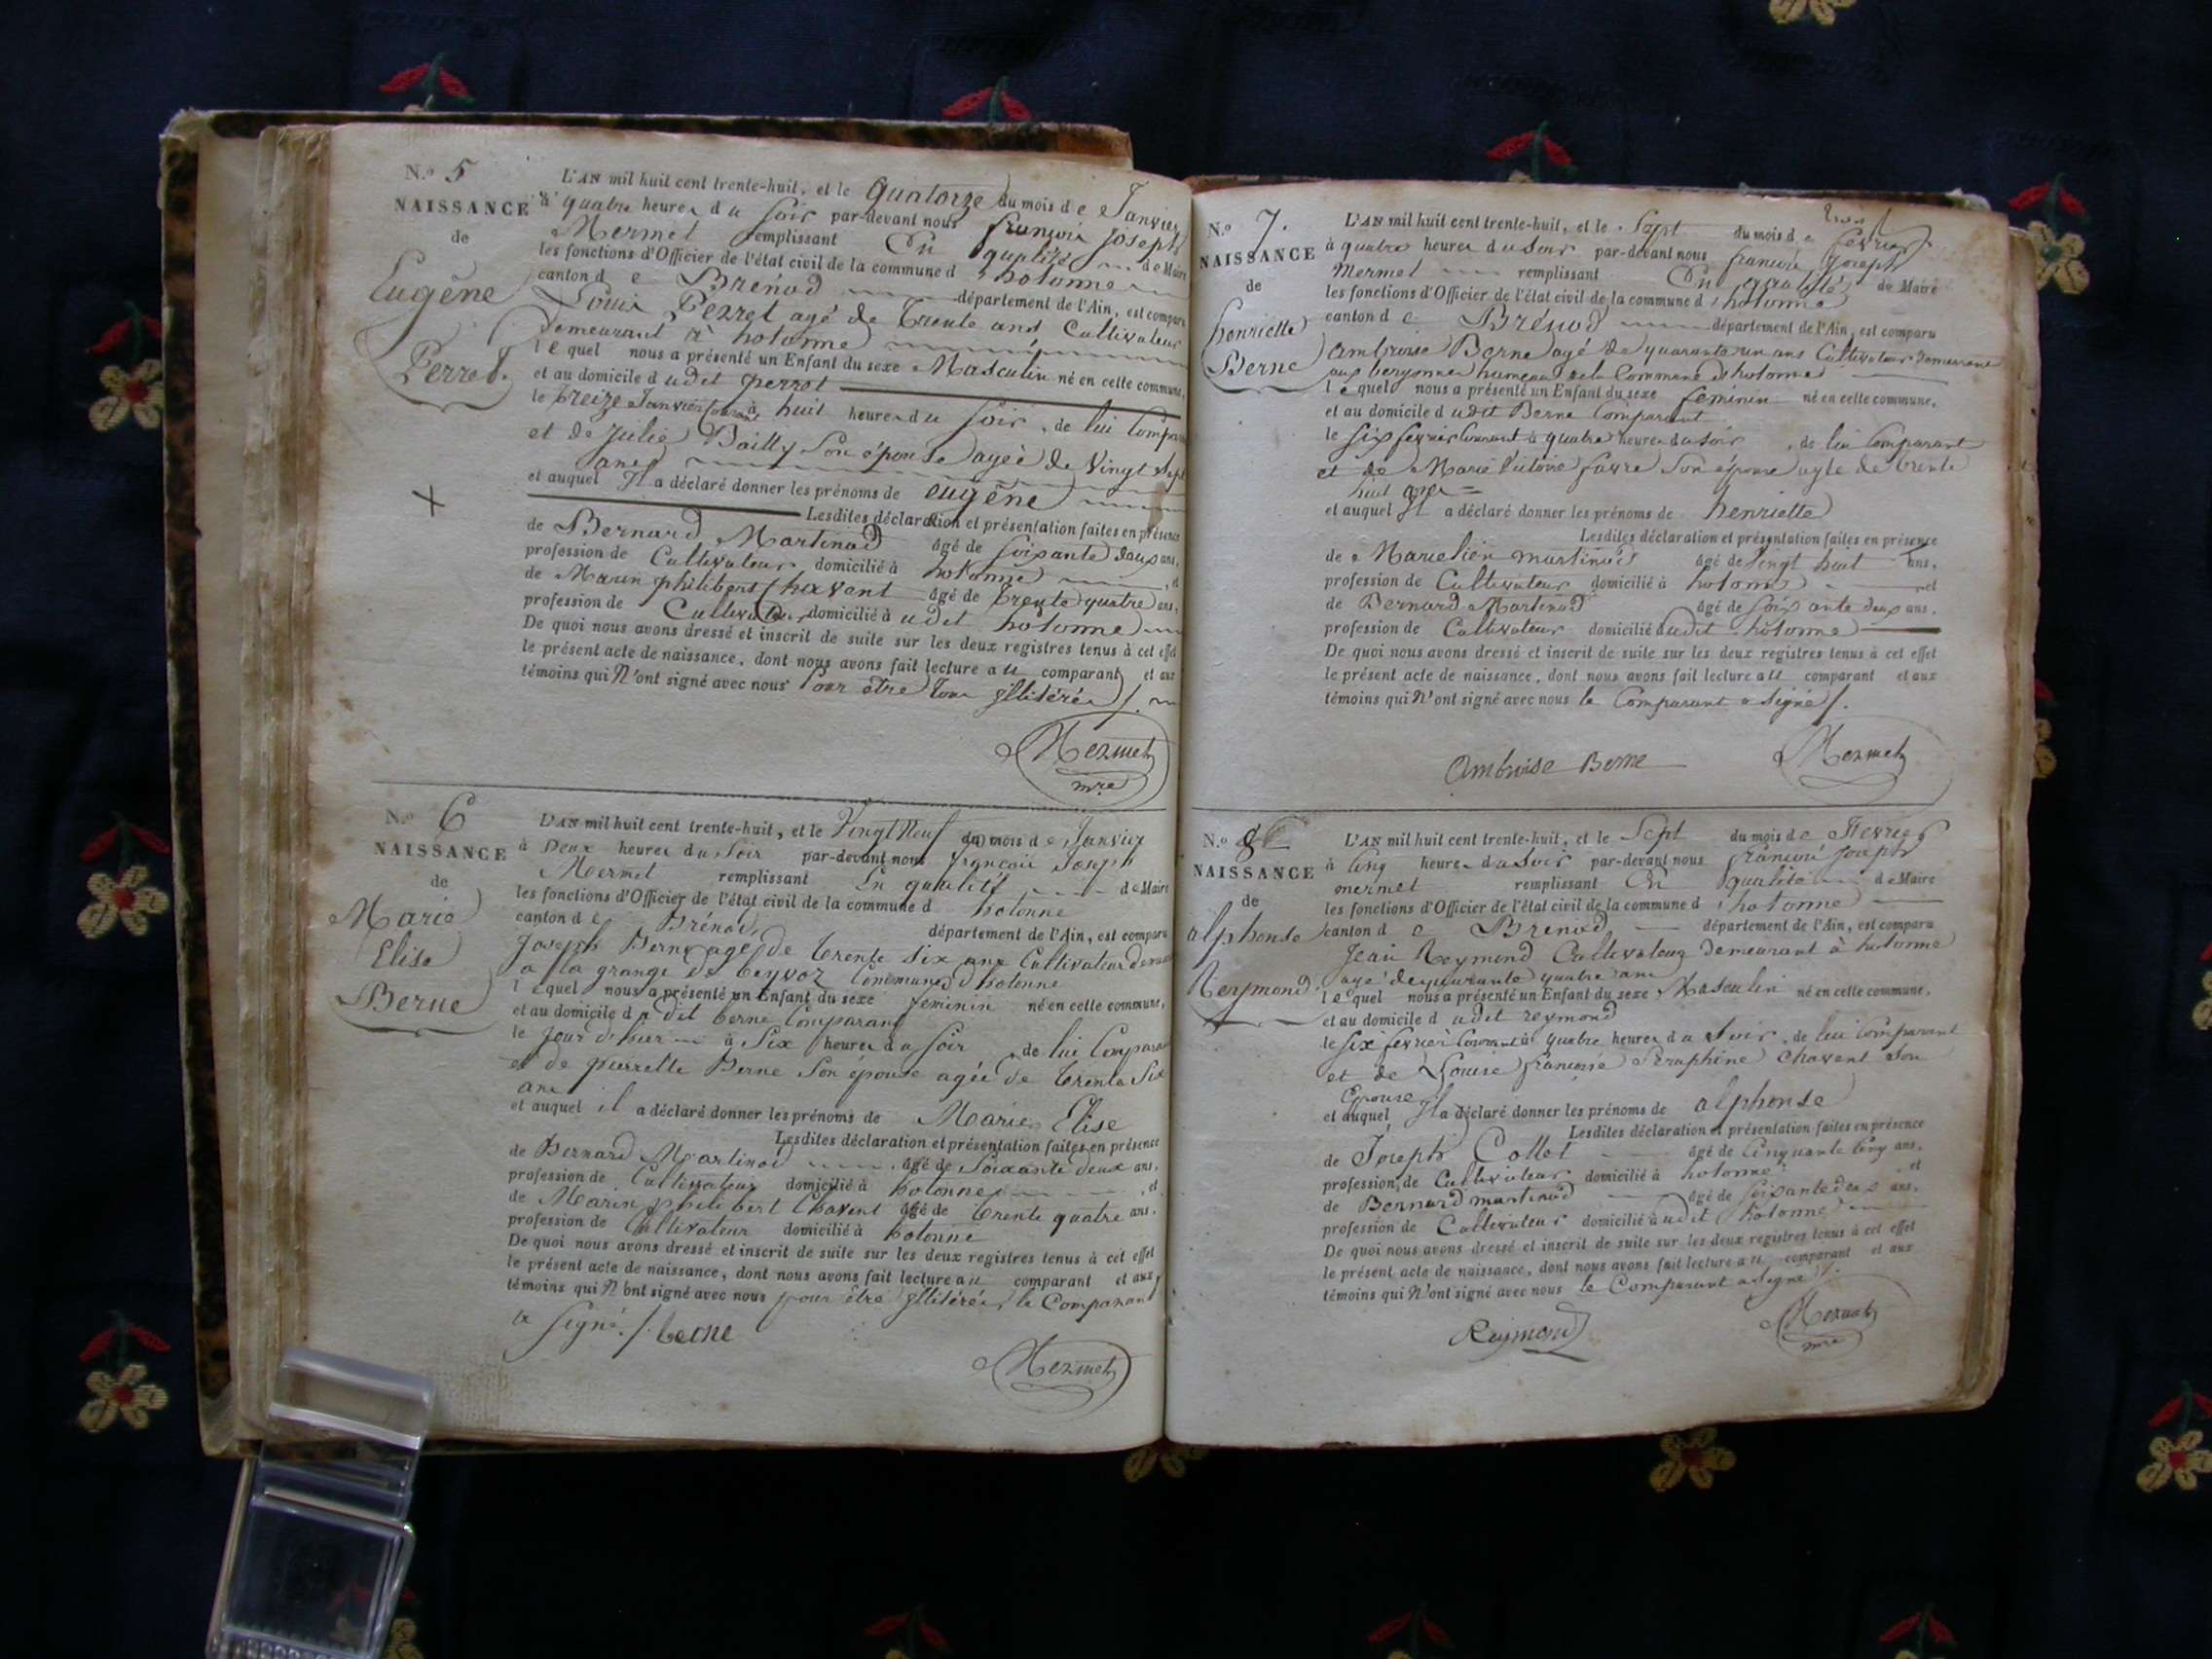 N.o 5
NAISSANCE
de
Eugène
Perret.
L'AN mil huit cent trente-huit, et le quatorze du mois de Janvier
à quatre heures du soir par-devant nous françois joseph
Mermet remplissant En qualité de Maire
les fonctions d'Officier de l'état civil de la commune d'hotonne
canton de Brénod département de l'Ain, est comparu
Louis Perret agé de trente ans Cultivateur
demeurant à hotonne
lequel nous a présenté un Enfant du sexe Masculin né en cette commune,
et au domicile dudit perret
le treize Janvier courant à huit heures du soir, de lui Compar
et de Julie Bailly son épouse agée de vingt sept
ans
et auquel Il a déclaré donner les prénoms de eugène
Lesdites déclaration et présentation faites en présence
de Bernard Martinod âgé de soixante deux ans,
profession de Cultivateur domicilié à hotonne, et
de Marin philibert Chavent âgé de trente quatre ans,
profession de Cultivateur domicilié audit hotonne
De quoi nous avons dressé et inscrit de suite sur les deux registres tenus à cet effet
le présent acte de naissance, dont nous avons fait lecture au comparant et aux
témoins qui N'ont signé avec nous Pour être tous Illitérés /.
Mermet
mre
N.o 6
NAISSANCE
de
Marie
Elise
Berne
L'AN mil huit cent trente-huit, et le Vingt Neuf du mois de Janvier
à Deux heures du Soir par-devant nous françois Joseph
Mermet remplissant En qualité de Maire
les fonctions d'Officier de l'état civil de la commune d hotonne
canton de Brénod département de l'Ain, est comparu
Joseph Berne agé de trente six ans Cultivateur
a la grange de Communes d hotonne
lequel nous a présenté un Enfant du sexe feminin né en cette commune,
et au domicile dudit berne Comparant
le jour d'hier à Six heures du soir, de lui Comparant
et de pierrette Berne son épouse agée de trente Six
ans
et auquel il a déclaré donner les prénoms de Marie Elise
Lesdites déclaration et présentation faites en présence
de Bernard Martinod âgé de Soixante deux ans,
profession de Cultivateur domicilié à hotonne, et
de Marin philibert Chavent âgé de trente quatre ans,
profession de Cultivateur domicilié à hotonne
De quoi nous avons dressé et inscrit de suite sur les deux registres tenus à cet effet
le présent acte de naissance, dont nous avons fait lecture au comparant et aux
témoins qui N'ont signé avec nous pour être Illitérés, le Comparant
a signé /. berne
Mermet
N.o 7.
NAISSANCE
de
henriette
Berne
L'AN mil huit cent trente-huit, et le Sept du mois de fevrier
à quatre heures du soir par-devant nous francois Joseph
Mermet remplissant En qualité de Maire
les fonctions d'Officier de l'état civil de la commune d'hotonne
canton de Brénod département de l'Ain, est comparu
Ambroise Berne agé de quarante un ans Cultivateur demeurant
aux bergonnes hameau de la Commune d'hotonne
lequel nous a présenté un Enfant du sexe feminin né en cette commune,
et au domicile dudit Berne Comparant
le six fevrier Courant à quatre heures du soir, de lui Comparant
et de Marie Victoire favre son épouse agée de trente
huit ans =
et auquel Il a déclaré donner les prénoms de henriette
Lesdites déclaration et présentation faites en présence
de Marcelien martinod âgé de Vingt huit ans,
profession de Cultivateur domicilié à hotonne et
de Bernard Martinod âgé de soixante deux ans,
profession de Cultivateur domicilié audit hotonne
De quoi nous avons dressé et inscrit de suite sur les deux registres tenus à cet effet
le présent acte de naissance, dont nous avons fait lecture au comparant et aux
témoins qui N'ont signé avec nous le Comparant a signé /.
Ambroise Berne
Mermet
N.o 8
NAISSANCE
de
alphonse
Reymond.
L'AN mil huit cent trente-huit, et le Sept du mois de Fevrier
à Cinq heures du soir par-devant nous françois Joseph
mermet remplissant En qualité de Maire
les fonctions d'Officier de l'état civil de la commune d'hotonne
canton de Brenod département de l'Ain, est comparu
Jean Reymond Cultivateur Demeurant à hotonne
agé de quarante quatre ans
lequel nous a présenté un Enfant du sexe Masculin né en cette commune,
et au domicile dudit reymond
le six fevrier Courant à quatre heures du soir, de lui Comparant
et de Louise françoise Séraphine Chavent son
Epouse
et auquel Il a déclaré donner les prénoms de alphonse
Lesdites déclaration et présentation faites en présence
de Joseph Collet âgé de Cinquante Cinq ans,
profession de Cultivateur domicilié à hotonne, et
de Bernard martinod âgé de soixante deux ans,
profession de Cultivateur domicilié audit hotonne
De quoi nous avons dressé et inscrit de suite sur les deux registres tenus à cet effet
le présent acte de naissance, dont nous avons fait lecture au comparant et aux
témoins qui N'ont signé avec nous le Comparant a signé /.
Reymond
Mermet
mre